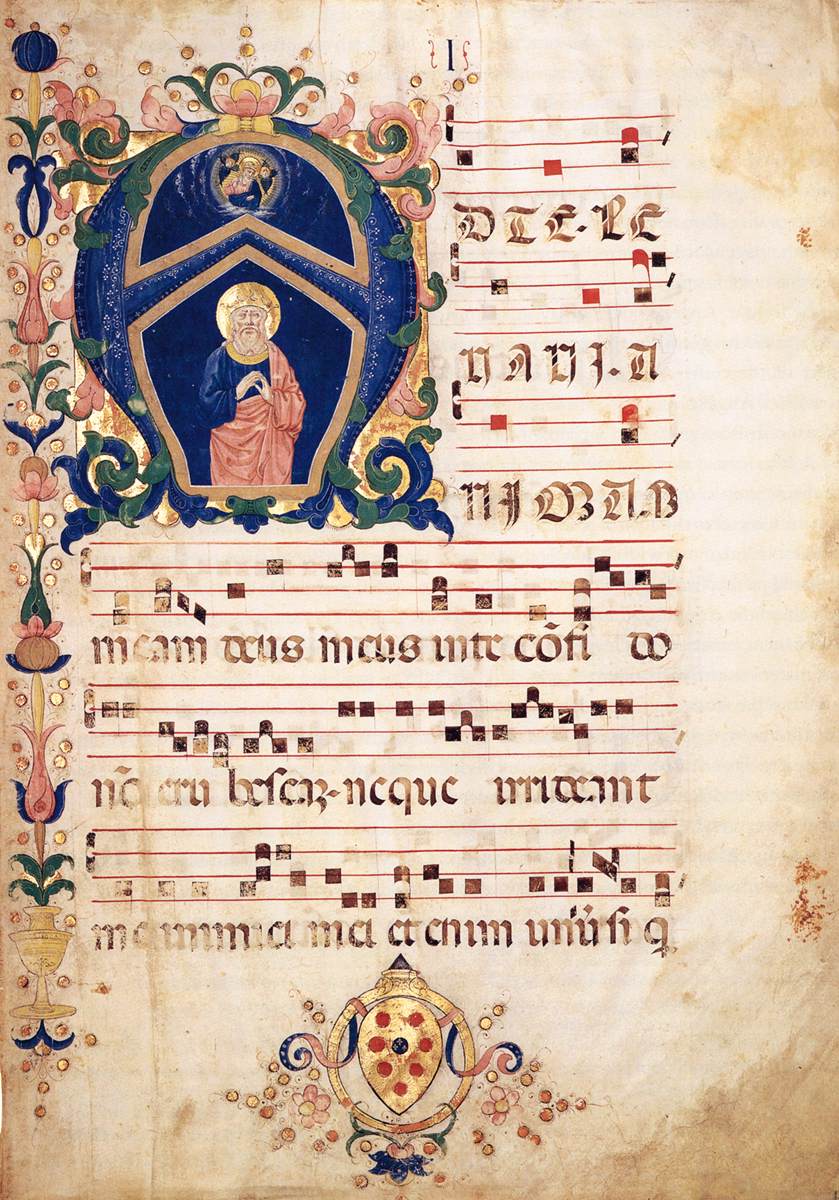 I
A DTE·LE
VAVI·A
NIMAM
meam deus meus inte cōfi do
nō eru bescaz·neque irrideant
me inimici mei etenim uniūsi q